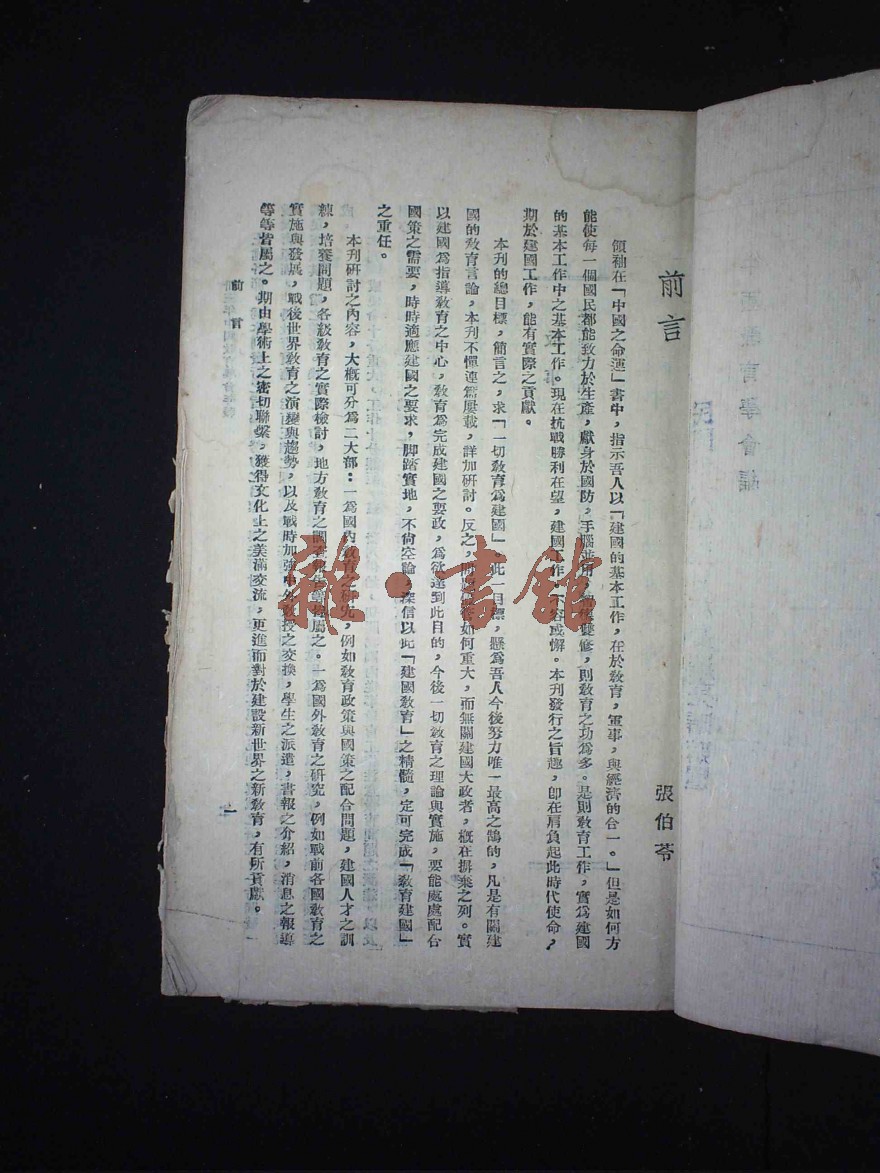 前言
張伯苓
領袖在「中國之命運」書中，指示吾人以「建國的基本工作，在於教育，軍事，與經濟的合一。」但是如何方
能使每一個國民都能致力於生產，獻身於國防，手腦並用，雙修，則教育之功為多。是則教育工作，實為建國
的基本工作中之基本工作。現在抗戰勝利在望，建國工作，容或懈。本刊發行之旨趣，卽在肩負起此時代使命，
期於建國工作，能有實際之貢獻。
本刊的總目標，簡言之，求「一切教育為建國」。此一目標，懸為吾人今後努力唯一最高之鵠的，凡是有關建
國的教育言論，本刊不憚連篇屢載，詳加研討。反之，問題如何重大，而無關建國大政者，槪在摒棄之列。實
以建國為指導教育之中心，教育為完成建國之要政，為欲達到此目的，今後一切教育之理論與實施，要能處處配合
國策之需要，時時適應建國之要求，脚踏實地，不尙空論，深信以此「建國教育」之精髓，定可完成「教育建國」
之重任。
本刊研討之內容，大槪可分為二大部：一為國內教育之研究，例如教育政策與國策之配合問題，建國人才之訓
練，培養問題，各級教育之實際檢討，地方教育之屬之。一為國外教育之研究，例如戰前各國教育之
實施與發展，戰後世界教育之演變與趨勢，以及戰時加強中外教授之交換，學生之派遣，書報之介紹，消息之報導
等等皆屬之。期由學術上之密切聯繫，獲得文化上之美滿交流，更進而對於建設新世界之新教育，有所貢獻。
前言
一
教育學會編
雜·書館